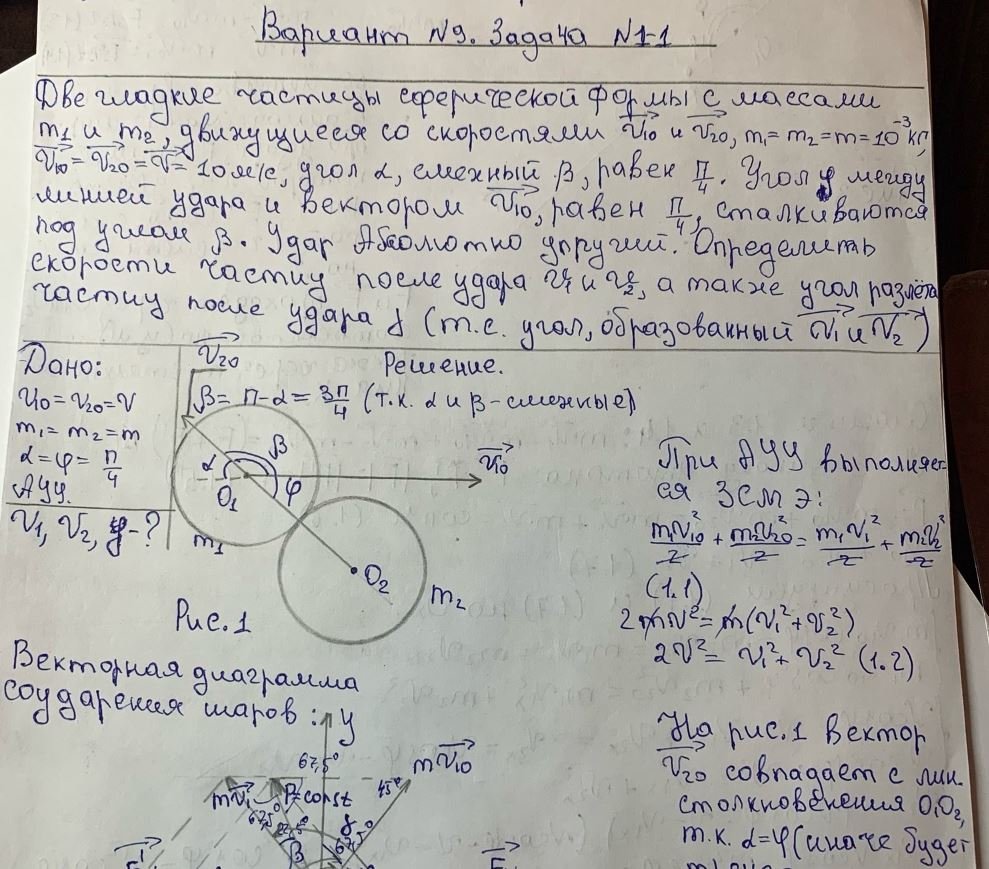 Вариант №9. Задача №1-1
Две гладкие частицы сферической формы с массами
m₁ и m₂, движущиеся со скоростями v₁₀ и v₂₀, m₁ = m₂ = m = 10⁻³ кг,
v₁₀ = v₂₀ = v = 10 м/с, угол α, смежный β, равен π/4. Угол φ между
линией удара и вектором v₁₀, равен π/4, сталкиваются
под углом β. Удар Абсолютно упругий. Определить
скорости частиц после удара v₁ и v₂, а также угол разлёта
частиц после удара γ (т.е. угол, образованный v₁ и v₂)
Дано:
v₁₀ = v₂₀ = v
m₁ = m₂ = m
α = φ = π/4
АУУ.
v₁, v₂, γ - ?
v₂₀
Решение.
β = π - α = 3π/4 (т.к. α и β - смежные)
α
β
φ
v₁₀
O₁
m₁
O₂
m₂
Рис. 1
При АУУ выполняет-
ся ЗСМЭ:
m₁v₁₀²/2 + m₂v₂₀²/2 = m₁v₁²/2 + m₂v₂²/2
(1.1)
2mv² = m(v₁² + v₂²)
2v² = v₁² + v₂² (1.2)
Векторная диаграмма
соударения шаров:
y
67,5°
mv₁
P=const
45°
mv₁₀
67,5°
22,5°
γ
67,5°
β
На рис. 1 вектор
v₂₀ совпадает с лин.
столкновения O₁O₂,
т.к. α = φ (иначе будет